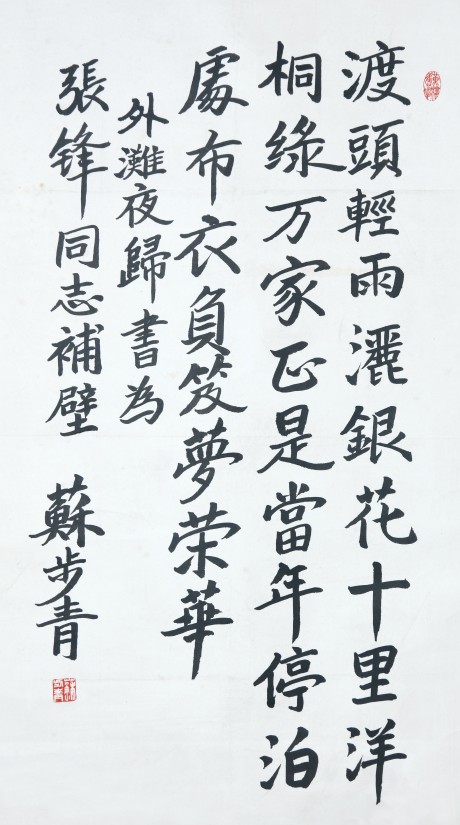 渡頭輕雨灑銀花十里洋
桐綠万家正是當年停泊
處布衣負笈夢荣華
外灘夜歸書為
張锋同志補壁
蘇步青